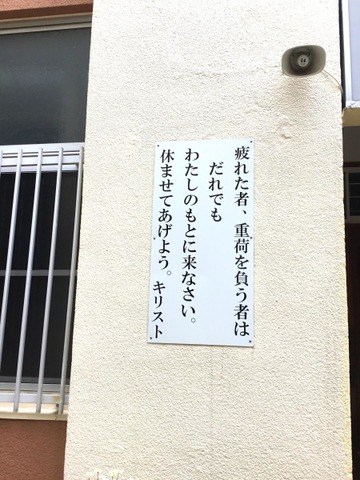 疲れた者、重荷を負う者は
だれでも
わたしのもとに来なさい。
休ませてあげよう。キリスト